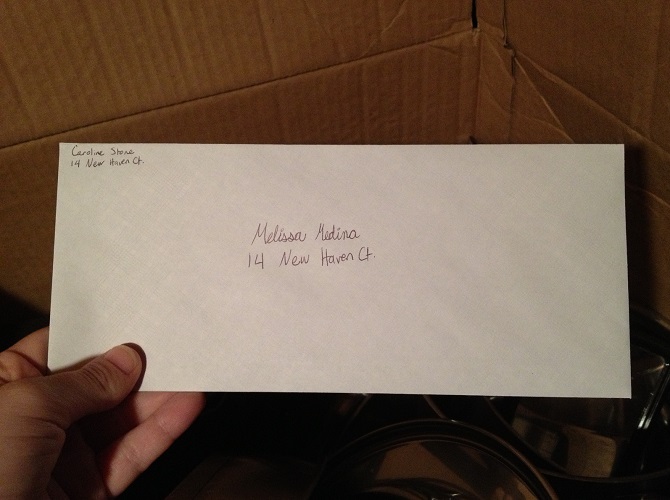 Caroline Stone
14 New Haven Ct.
Melissa Medina
14 New Haven Ct.